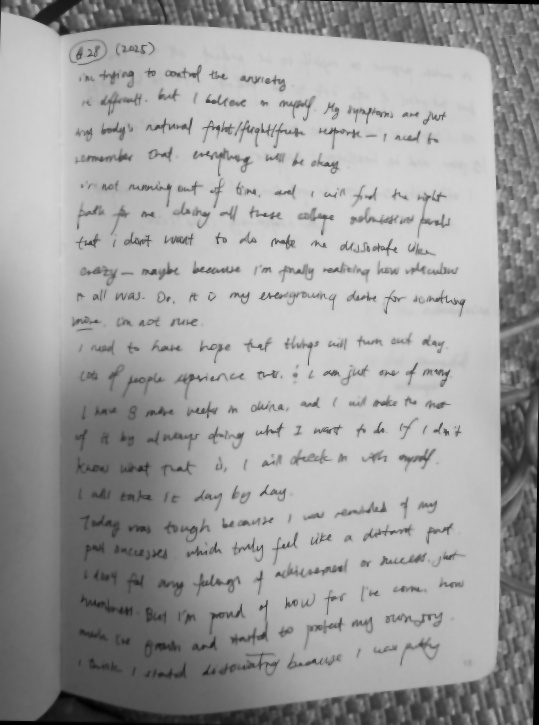 6.28 (2025)
i'm trying to control the anxiety
is difficult. but I believe in myself. My symptoms are just
my body's natural fright/flight/freeze response — I need to
remember that. everything will be okay.
i'm not running out of time, and I will find the right
path for me. doing all these college admissions panels
that i don't want to do make me dissociate like
crazy — maybe because I'm finally realizing how ridiculous
it all was. Or, it is my evergrowing desire for something
more. i'm not sure.
I need to have hope that things will turn out okay.
Lots of people experience this. & I am just one of many.
I have 8 more weeks in china, and I will make the most
of it by always doing what I want to do. If I don't
know what that is, I will check in with myself.
I will take it day by day.
Today was tough because I was reminded of my
past successes which truly feel like a distant past.
I don't feel any feelings of achievement or success. just
numbness. But I'm proud of how far I've come. how
much I've grown and started to protect my own joy.
I think I started dissociating because I was